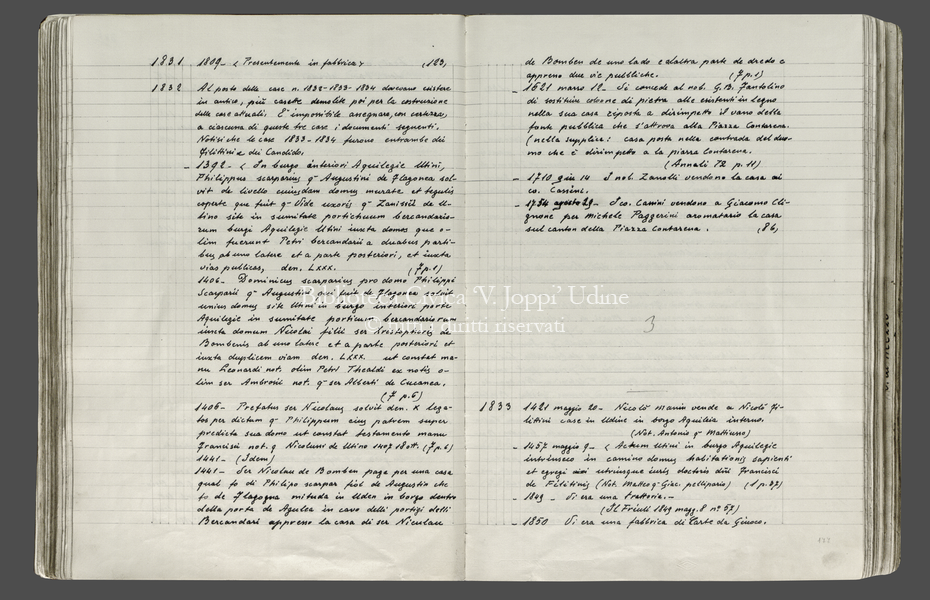 1831 1809 - < Presentemente in fabbrica > (123)
1832 Al posto delle case n. 1832-1833-1834 dovevano esistere
in antico, più casette demolite poi per la costruzione
delle case attuali. È impossibile assegnare, con certezza,
a ciascuna di queste tre case, i documenti seguenti.
Notisi che le case 1833-1834 furono entrambe dei
Filittini e dei Candido.
- 1392 - < In burgo interiori Aquilegie Utini,
Philippus scarparius q- Augustini de Flagonea sol-
vit de livello cuiusdam domus murate et tegulis
coperte que fuit q- Vide uxoris q- Zanisii de U-
tino site in sumitate portichuum bercandario-
rum burgi Aquilegie Utini iuxta domos que o-
lim fuerunt Petri bercandarii a duabus parti-
bus ab uno latere et a parte posteriori, et iuxta
vias publicas, den. LXXX. (7 p. 1)
1406 - Dominicus scarparius pro domo Philippi
Scarparii q- Augustini qui fuit de Flagonea solvit
unius domus site Utini in burgo interiori porte
Aquilegie in sumitate porticuum bercandariorum
iuxta domum Nicolai filii ser Cristophoris de
Bombenis ab uno latere et a parte posteriori et
iuxta duplicem viam den. LXXX. ut constat ma-
nu Leonardi not. olim Petri Thealdi ex notis o-
lim ser Ambrosii not. q- ser Alberti de Cucanea.
(7 p. 6)
1406 - Prefatus ser Nicolaus solvit den. X lega-
tos per dictum q- Philippum eius patrem super
predicta sua domo ut constat testamento manu
Francisci not. q- Nicolussi de Utino 1407 18 ott. (7 p. 6)
1441 - (Idem)
1441 - Ser Nicolau de Bomben paga per una casa
qual fo di Philipo scarpar fiol de Augustin che
fo de Flagogna mituda in Uden in borgo dentro
della porta de Agulea in cavo delli portigi delli
Bercandari appresso la casa di ser Niculau
de Bomben de uno lado e dalaltra parte de dredo e
appreno due vie pubbliche. (7 p. 1)
- 1621 marzo 12 - Si concede al nob. G.B. Fantolino
di sostituir colone di pietra alle esistenti in legno
nella sua casa esposta a dirimpetto il vano della
fonte pubblica che s'attrova alla Piazza Contarena.
(nella supplica: casa posta nella contrada del duo-
mo che è dirimpetto a la piazza Contarena.
(Annali T2 p. 11)
- 1710 giu 14 I nob. Zanolli vendono la casa ai
co. Cassini.
- 1754 agosto 29 - I co. Cassini vendono a Giacomo Cli-
gnone per Michele Paggerini aromatario la casa
sul canton della Piazza Contarena. (86)
Biblioteca Civica 'V. Joppi' Udine
© tutti i diritti riservati
3
1833 1421 maggio 20 - Nicolò Manin vende a Nicolò Fi-
littini case in Udine in borgo Aquileia interno.
(Not. Antonio q- Mattiusso)
- 1457 maggio 9 - < Actum Utini in burgo Aquilegie
intrinseco in camino domus habitationis sapienti
et egregi viri utriusque iuris doctoris dni Francisci
de Filitinis (Not. Matteo q- Giac. pellipario) (1 p. 87)
- 1849 - Vi era una trattoria. -
(Il Friuli 1849 magg. 8 n° 57)
- 1850 Vi era una fabbrica di Carte da Giuoco.